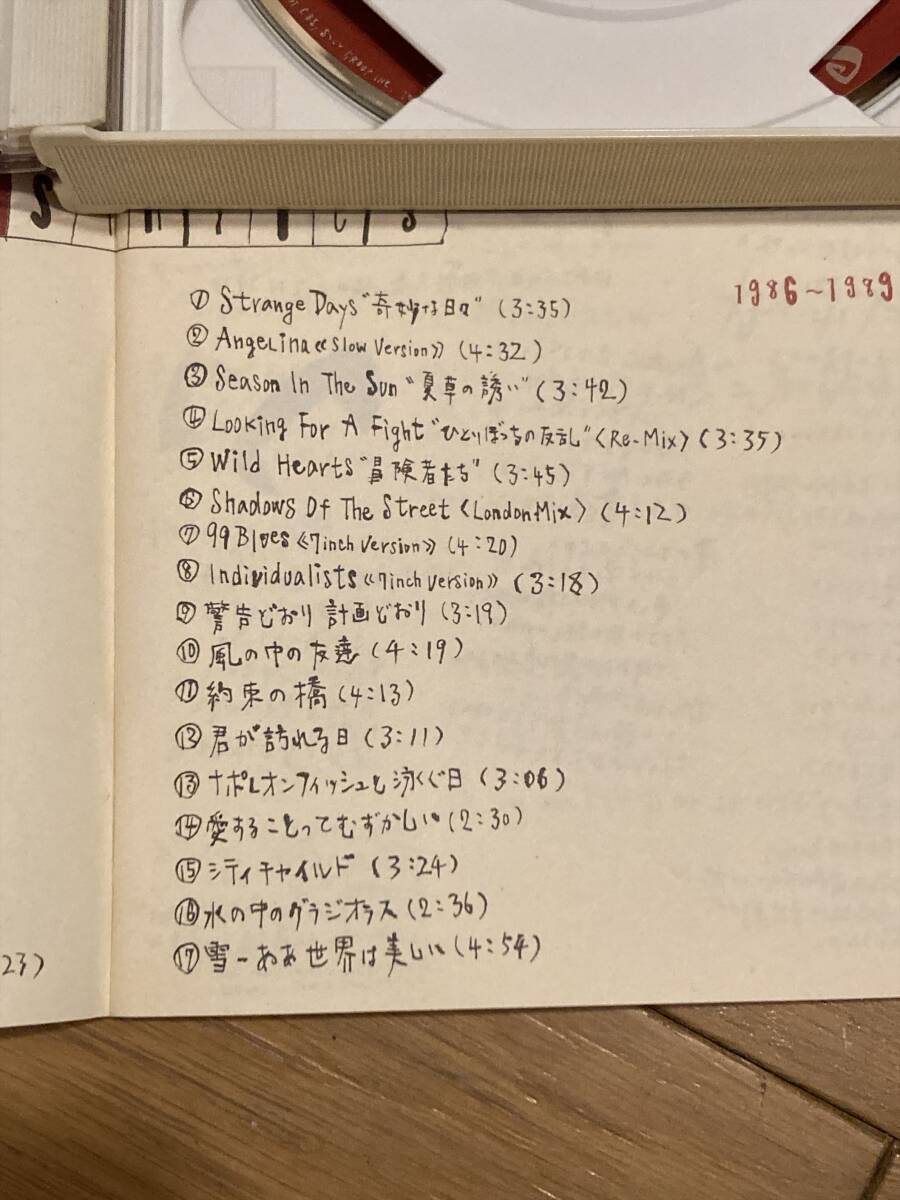 1986~1989
① Strange Days "奇妙な日々" (3:35)
② Angelina《Slow Version》 (4:32)
③ Season In The Sun "夏草の誘い" (3:42)
④ Looking For A Fight "ひとりぼっちの反乱" 〈Re-Mix〉 (3:35)
⑤ Wild Hearts "冒険者たち" (3:45)
⑥ Shadows Of The Street 〈London Mix〉 (4:12)
⑦ 99 Blues《7inch Version》 (4:20)
⑧ Individualists《7inch Version》 (3:18)
⑨ 警告どおり 計画どおり (3:19)
⑩ 風の中の友達 (4:19)
⑪ 約束の橋 (4:13)
⑫ 君が訪れる日 (3:11)
⑬ ナポレオンフィッシュと泳ぐ日 (3:06)
⑭ 愛することってむずかしい (2:30)
⑮ シティチャイルド (3:24)
⑯ 水の中のグラジオラス (2:36)
⑰ 雪-ああ世界は美しい (4:54)
23)